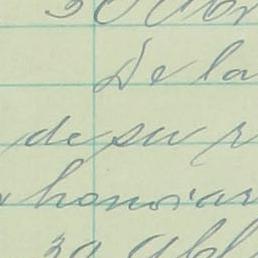 30 Abr
De la
de su r
honorar
30 Abl